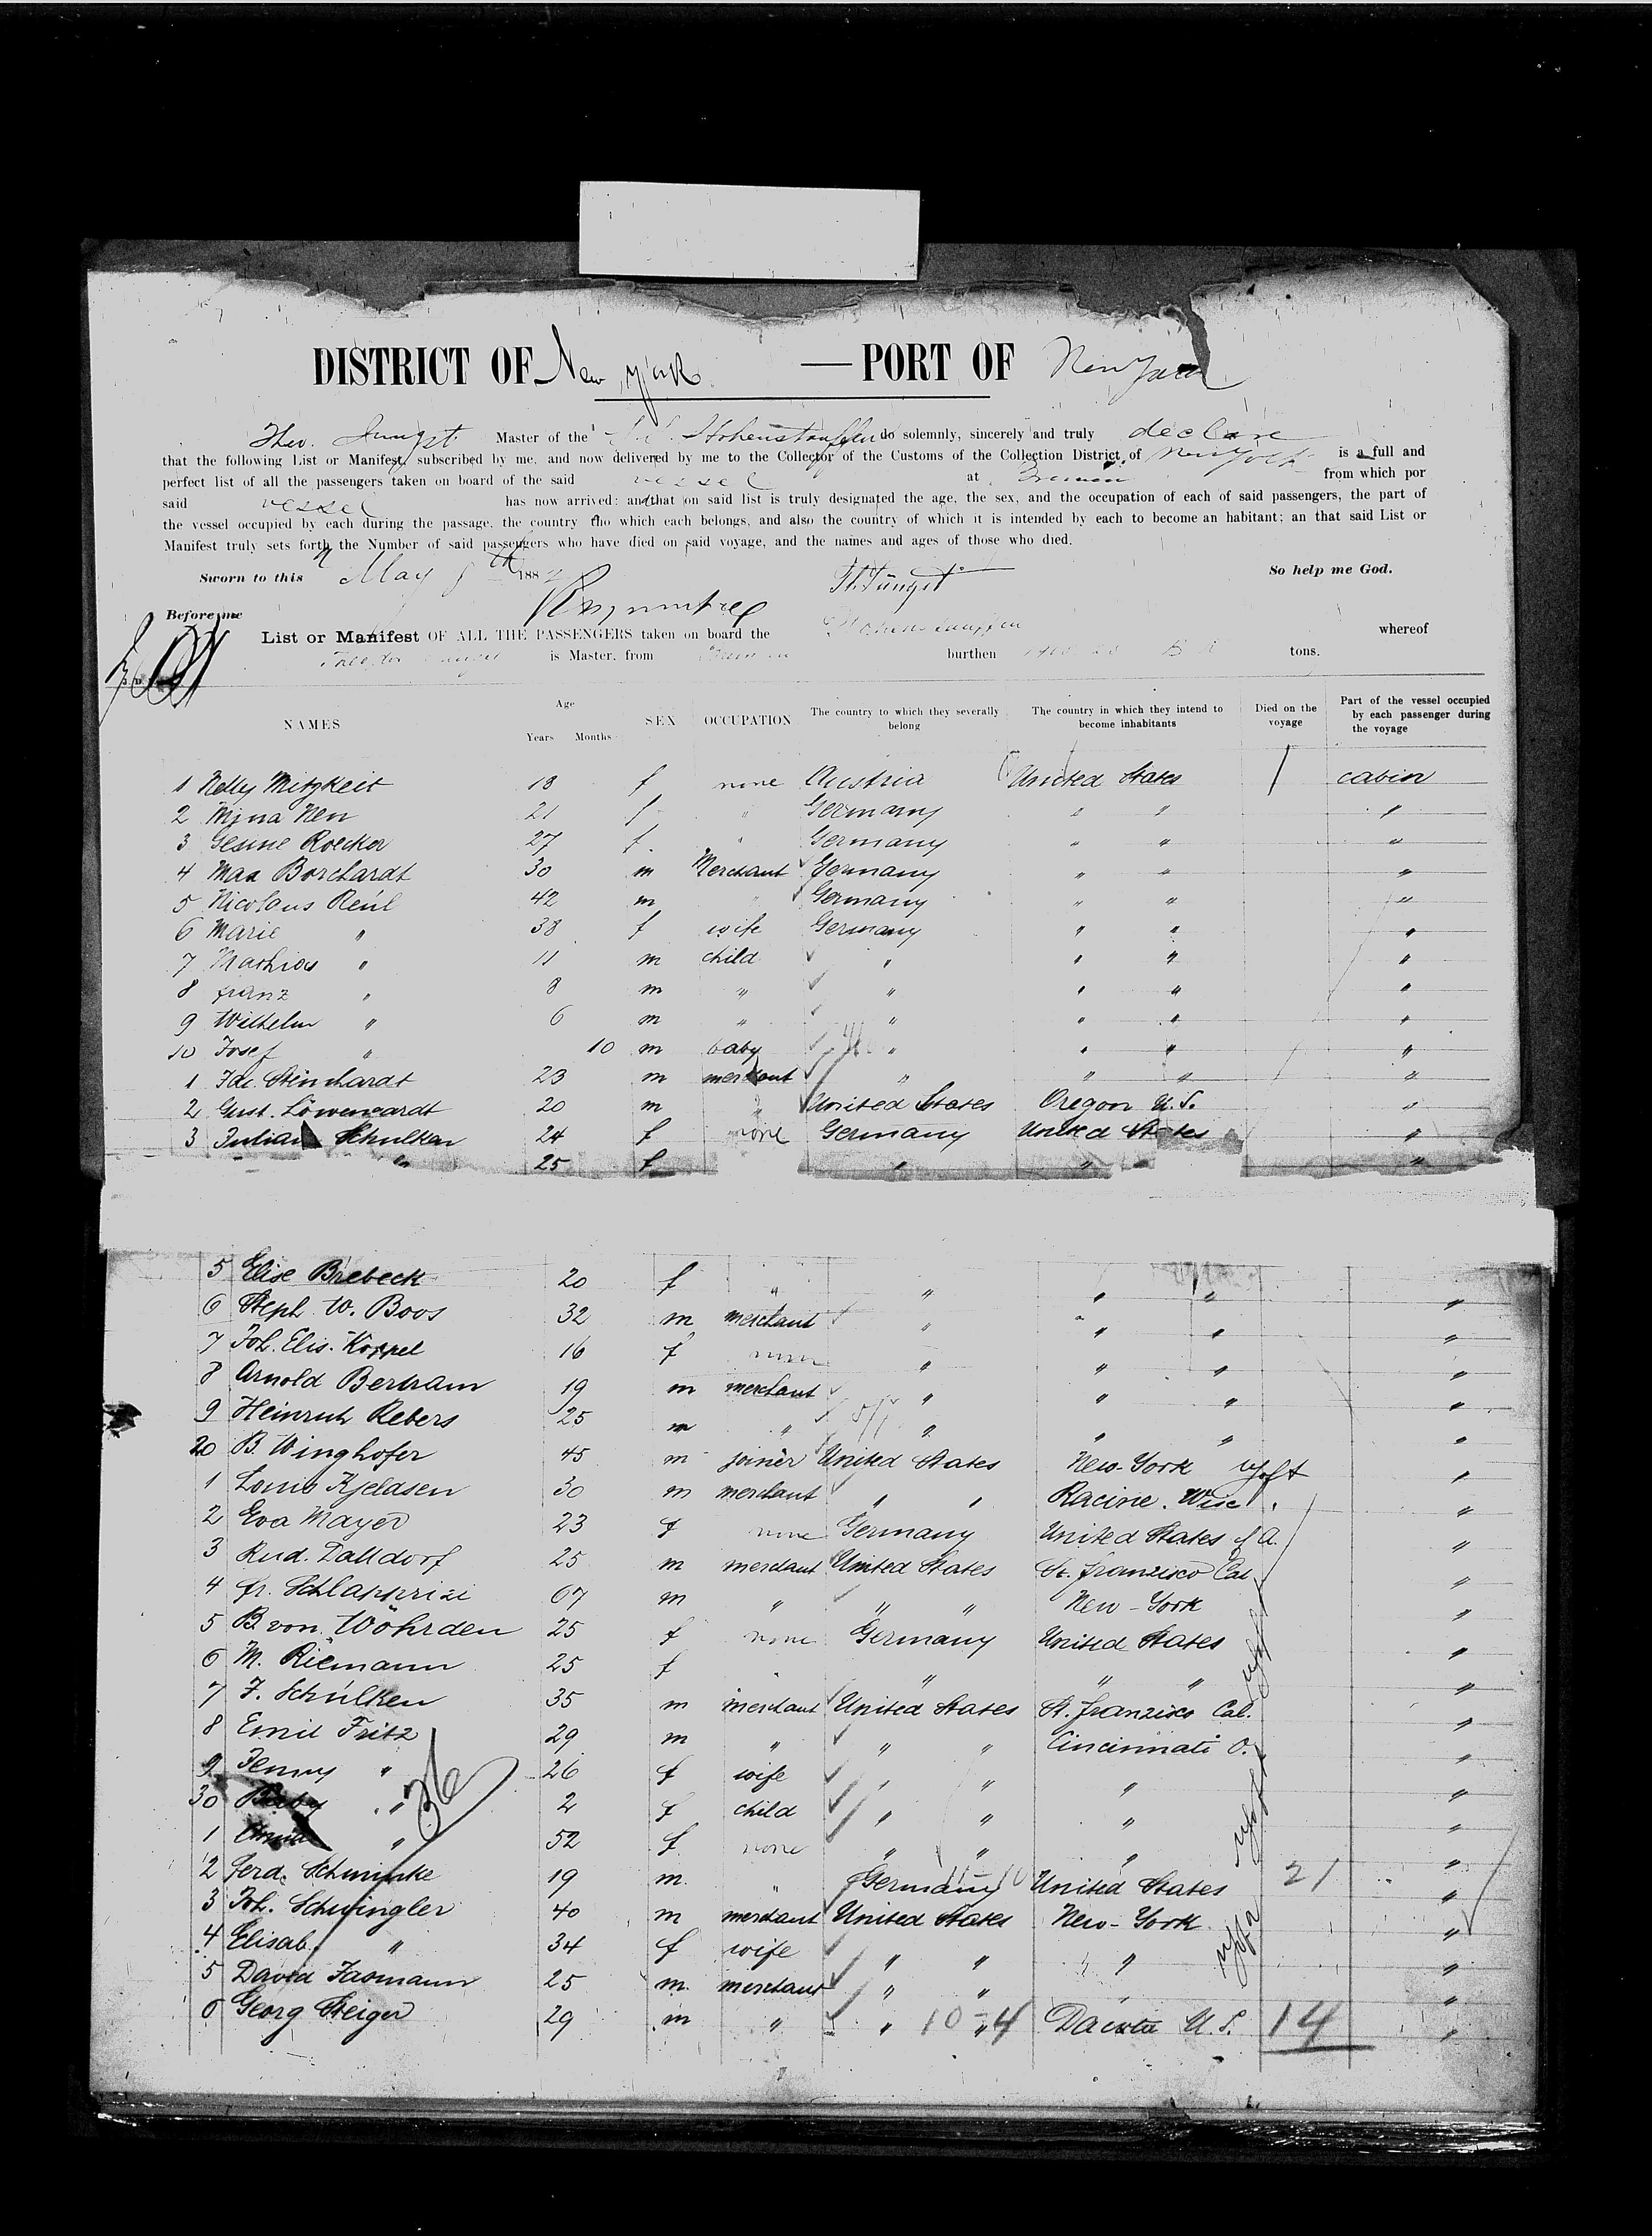 DISTRICT OF New York — PORT OF New York
Theo. Jüngst Master of the S.S. Hohenstauffen do solemnly, sincerely and truly declare
that the following List or Manifest, subscribed by me, and now delivered by me to the Collector of the Customs of the Collection District of New York is a full and
perfect list of all the passengers taken on board of the said vessel at Bremen from which por
said vessel has now arrived; and that on said list is truly designated the age, the sex, and the occupation of each of said passengers, the part of
the vessel occupied by each during the passage, the country tho which each belongs, and also the country of which it is intended by each to become an habitant; an that said List or
Manifest truly sets forth the Number of said passengers who have died on said voyage, and the names and ages of those who died.
Sworn to this May 8th 188 Th. Jüngst So help me God.
Before me
List or Manifest OF ALL THE PASSENGERS taken on board the Hohenstauffen whereof
Theodor Jüngst is Master, from Bremen burthen tons.
NAMES Age Years Months SEX OCCUPATION The country to which they severally belong The country in which they intend to become inhabitants Died on the voyage Part of the vessel occupied by each passenger during the voyage
1 Nelly Mitzkeit 18 f none Austria United States cabin
2 Mina Neu 21 f " Germany " " "
3 Gesine Roecker 27 f " Germany " " "
4 Max Borchardt 30 m Merchant Germany " " "
5 Nicolaus Reul 42 m " Germany " " "
6 Marie " 38 f wife Germany " " "
7 Mathias " 11 m child " " " "
8 Franz " 8 m " " " " "
9 Wilhelm " 6 m " " " " "
10 Josef " 10 m baby " " " "
1 Jac. Steinhardt 23 m merchant " " " "
2 Gust. Löwengardt 20 m " United States Oregon U.S. "
3 Schulken 24 f none Germany United States "
" 25 f " " "
5 Elise Brebeck 20 f " " " " "
6 Steph. W. Boos 32 m merchant " " " "
7 Joh. Elis. Koppel 16 f none " " " "
8 Arnold Bertram 19 m merchant " " " "
9 Heinrich Rebers 25 m " " " " "
20 B. Winghofer 45 m joiner United States New-York "
1 Louis Kjeldsen 30 m merchant " " Racine. Wisc. "
2 Eva Mayer 23 f none Germany United States of A. "
3 Rud. Dalldorf 25 m merchant United States St. Franzisco Cal. "
4 Fr. Schlapprizi 67 m " " " New-York "
5 B. von Wöhrden 25 f none Germany United States "
6 M. Riemann 25 f " " " " "
7 F. Schulken 35 m merchant United States St. Franzisco Cal. "
8 Emil Fritz 29 m " " " Cincinnati O. "
9 Jenny " 26 f wife " " " "
30 Baby " 2 f child " " " "
1 " 52 f none " " " "
2 Ferd. Schminke 19 m " Germany United States 21 "
3 Joh. Schwingler 40 m merchant United States New-York "
4 Elisab. " 34 f wife " " " "
5 David Jasmann 25 m merchant " " " "
6 Georg Steiger 29 m " " " 10-4 Dacota U.S. 14 "
36